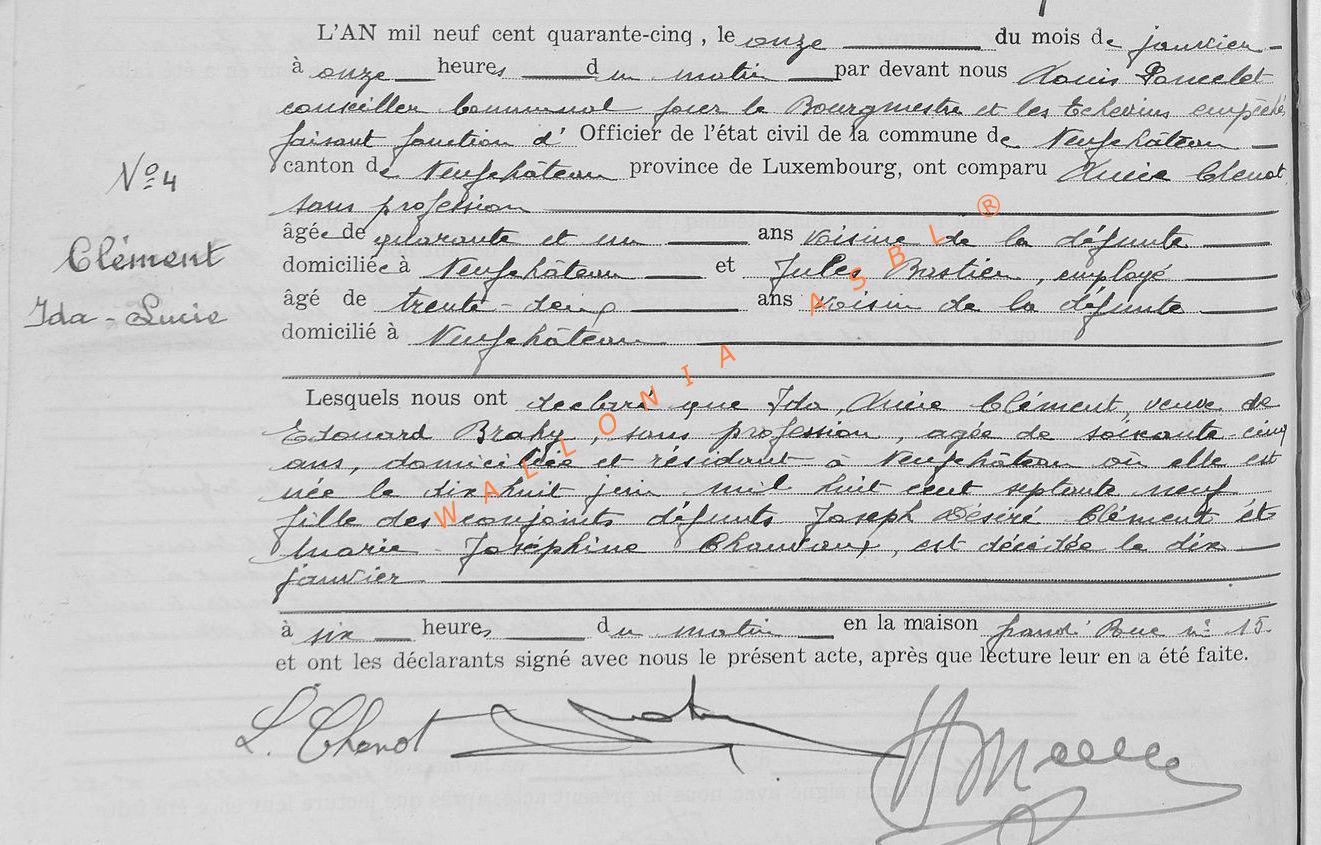 L'AN mil neuf cent quarante-cinq, le onze du mois de janvier
à onze heures du matin par devant nous Louis Poncelet
conseiller Communal pour le Bourgmestre et les Echevins empêchés
faisant fonction d' Officier de l'état civil de la commune de Neufchâteau
canton de Neufchâteau province de Luxembourg, ont comparu Lucie Chenot,
sans profession
âgée de quarante et un ans voisine de la défunte
domiciliée à Neufchâteau et Jules Bastien, employé
âgé de trente-cinq ans voisin de la défunte
domicilié à Neufchâteau
Nº 4
Clément
Ida-Lucie
Lesquels nous ont declaré que Ida, Lucie Clément, veuve de
Edouard Brahy, sans profession, agée de soixante cinq
ans, domiciliée et résidant à Neufchâteau où elle est
née le dix huit juin mil huit cent septante neuf
fille des conjoints défunts Joseph Désiré Clément et
Marie-Joséphine Chauvaux, est décédée le dix
janvier
à six heures du matin en la maison grand'Rue nº 15.
et ont les déclarants signé avec nous le présent acte, après que lecture leur en a été faite.
L. Chenot
WALLONIA ASBL ®